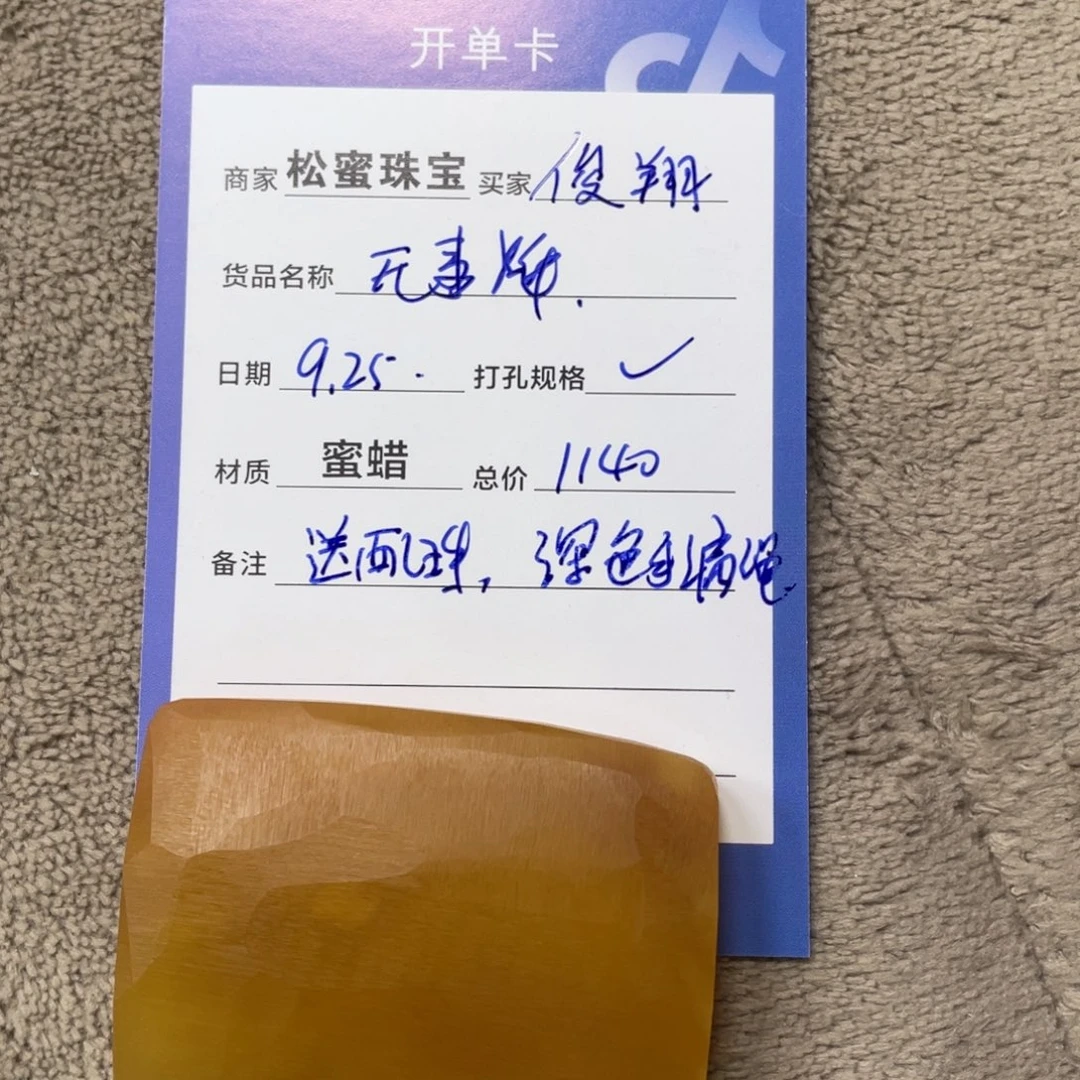 开单卡
商家 松蜜珠宝 买家 俊翔
货品名称 无事牌.
日期 9.25. 打孔规格 ✓
材质 蜜蜡 总价 1140
备注 送配珠, 深色手搞绳